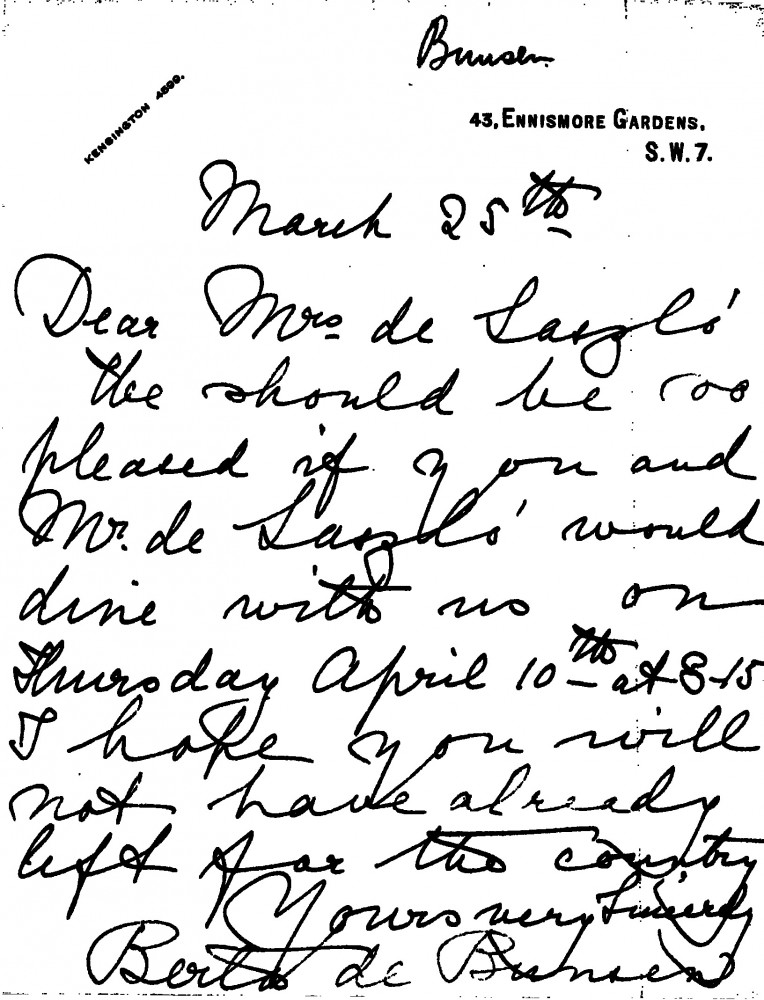 Bunsen
KENSINGTON 4599.
43, ENNISMORE GARDENS,
S.W.7.
March 25th
Dear Mrs de Laszló
We should be so
pleased if you and
Mr. de Laszló would
dine with us on
Thursday April 10th at 8-15
I hope you will
not have already
left for the country
Yours very Sincerely
Berta de Bunsen